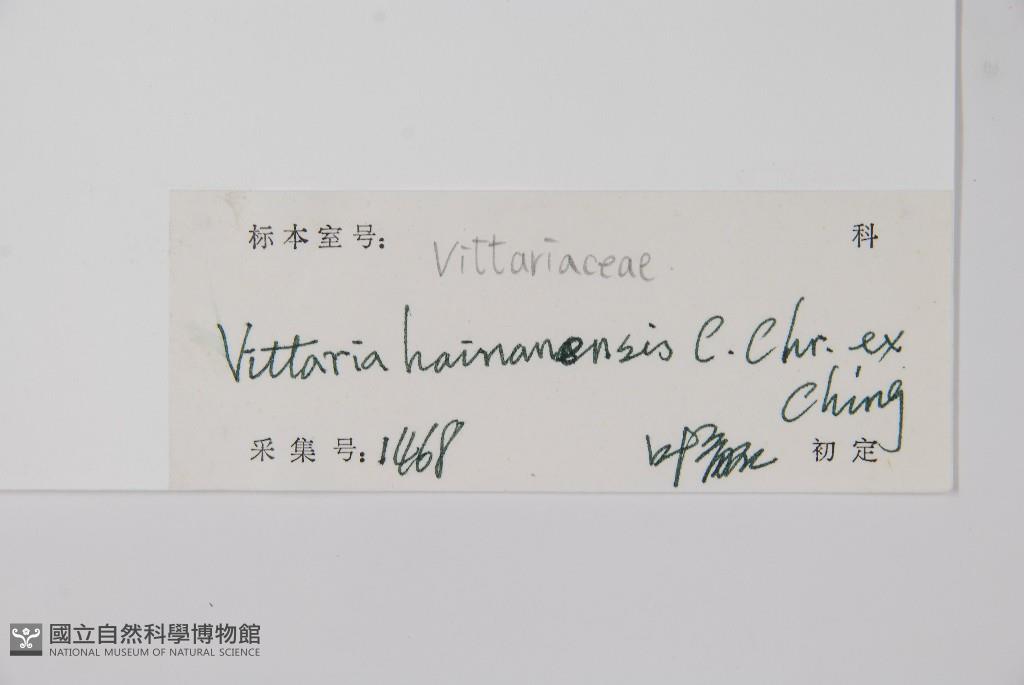 标本室号: 科
Vittariaceae
Vittaria hainanensis C. Chr. ex
Ching
采集号: 1468 叶 初定
國立自然科學博物館
NATIONAL MUSEUM OF NATURAL SCIENCE